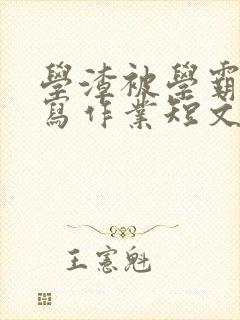 學渣被學霸
寫作業短文
王憲魁